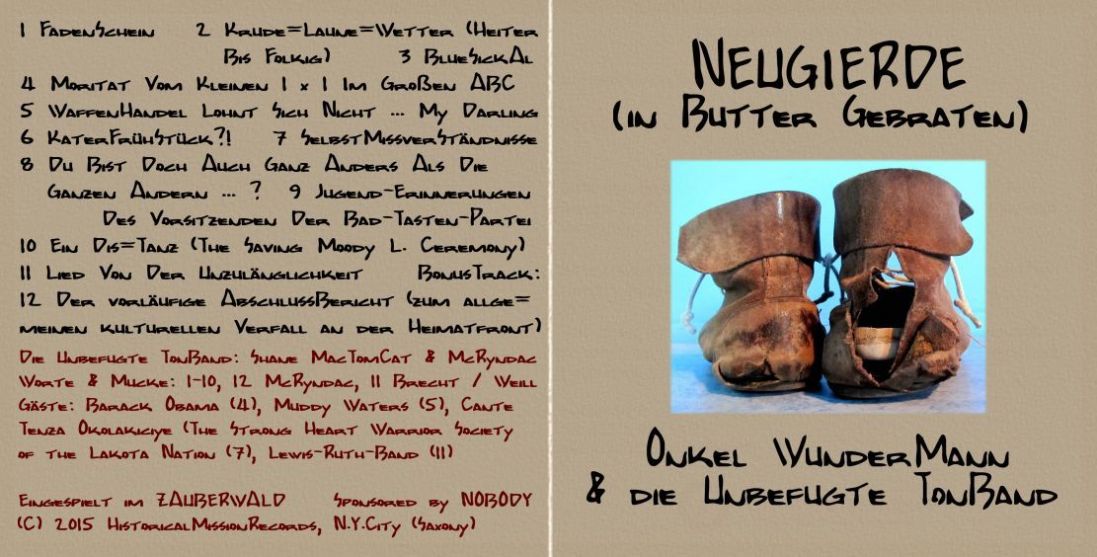 1 FadenSchein 2 Krude=Laune=Wetter (Heiter
Bis Folkig) 3 BlueSickAl
4 Moritat Vom Kleinen 1 x 1 Im Großen ABC
5 WaffenHandel Lohnt Sich Nicht ... My Darling
6 KaterFrühStück?! 7 SelbstMissverStändnisse
8 Du Bist Doch Auch Ganz Anders Als Die
Ganzen Andern ... ? 9 Jugend-Erinnerungen
Des Vorsitzenden Der Bad-Tasten-Partei
10 Ein Dis=Tanz (The Saving Moody L. Ceremony)
11 Lied Von Der Unzulänglichkeit BonusTrack:
12 Der vorläufige AbschlussBericht (zum allge=
meinen kulturellen Verfall an der Heimatfront)
Die Unbefugte TonBand: Shane MacTomCat & McRyndac
Worte & Mucke: 1-10, 12 McRyndac, 11 Brecht / Weill
Gäste: Barack Obama (4), Muddy Waters (5), Cante
Tenza Okolakiciye (The Strong Heart Warrior Society
of the Lakota Nation (7), Lewis-Ruth-Band (11)
Eingespielt im ZAUBERWALD Sponsored by NOBODY
(C) 2015 HistoricalMissionRecords, N.Y.City (Saxony)
Neugierde
(in Butter Gebraten)
Onkel WunderMann
& die Unbefugte TonBand